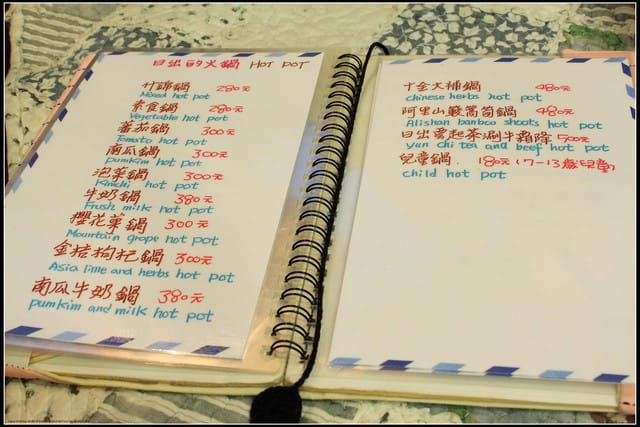 日出的火鍋 HOT POT
什錦鍋 280元
Mixed hot pot
素食鍋 280元
Vegetable hot pot
蕃茄鍋 300元
Tomato hot pot
南瓜鍋 300元
Pumkim hot pot
泡菜鍋 300元
Kimchi hot pot
牛奶鍋 380元
Fresh milk hot pot
櫻花葉鍋 300元
Mountain grape hot pot
金桔枸杞鍋 300元
Asia lime and herbs hot pot
南瓜牛奶鍋 380元
pumkim and milk hot pot
十全大補鍋 480元
chinese herbs hot pot
阿里山籔篙筍鍋 480元
Alishan banboo shoots hot pot
日出雲起茶涮牛霜降 500元
Yun chi tea and beef hot pot
兒童鍋. 180元(7-13歲兒童)
child hot pot